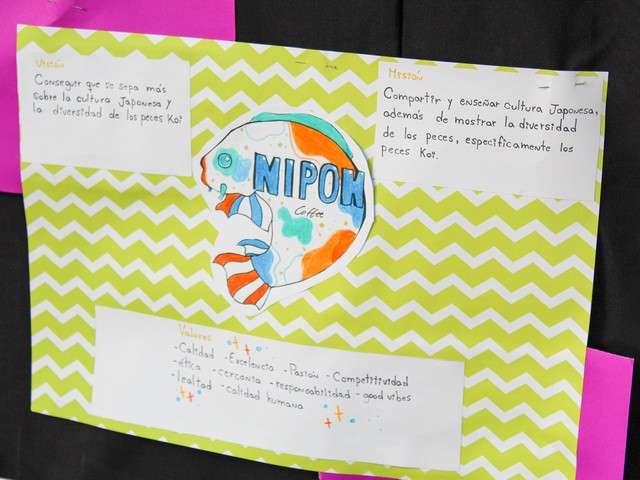 Visión
Conseguir que se sepa más
sobre la cultura Japonesa y
la diversidad de los peces Koi
Misión
Compartir y enseñar cultura Japonesa,
además de mostrar la diversidad
de los peces, específicamente los
peces Koi.
NIPON
Coffee
Valores
-Calidad -Excelencia -Pasión -Competitividad
-ética -cercania -responsabilidad -good vibes
-lealtad -calidad humana